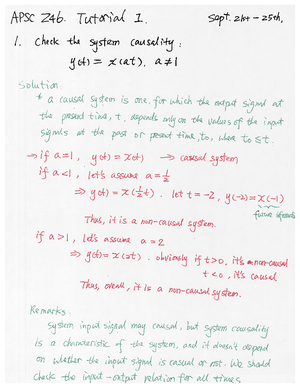 APSC 246. Tutorial 1. Sept. 21st - 25th.
1. Check the system causality:
y(t) = x(at), a≠1
Solution:
* a causal system is one for which the output signal at
the present time, t, depends only on the values of the input
signals at the past or present time, to, where to ≤ t.
→ if a=1, y(t) = x(t) → casual system
if a<1, let's assume a = 1/2
⇒ y(t) = x(1/2 t). let t = -2, y(-2) = x(-1)
future information
Thus, it is a non-causal system.
if a>1, let's assume a = 2
⇒ y(t) = x(2t). obviously if t>0, it's a non-causal
t<0, it's causal
Thus, overall, it is a non-causal system.
Remarks:
System input signal may causal, but system causality
is a characteristic of the system, and it doesn't depend
on whether the input signal is casual or not. We should
check the input-output relation for all times